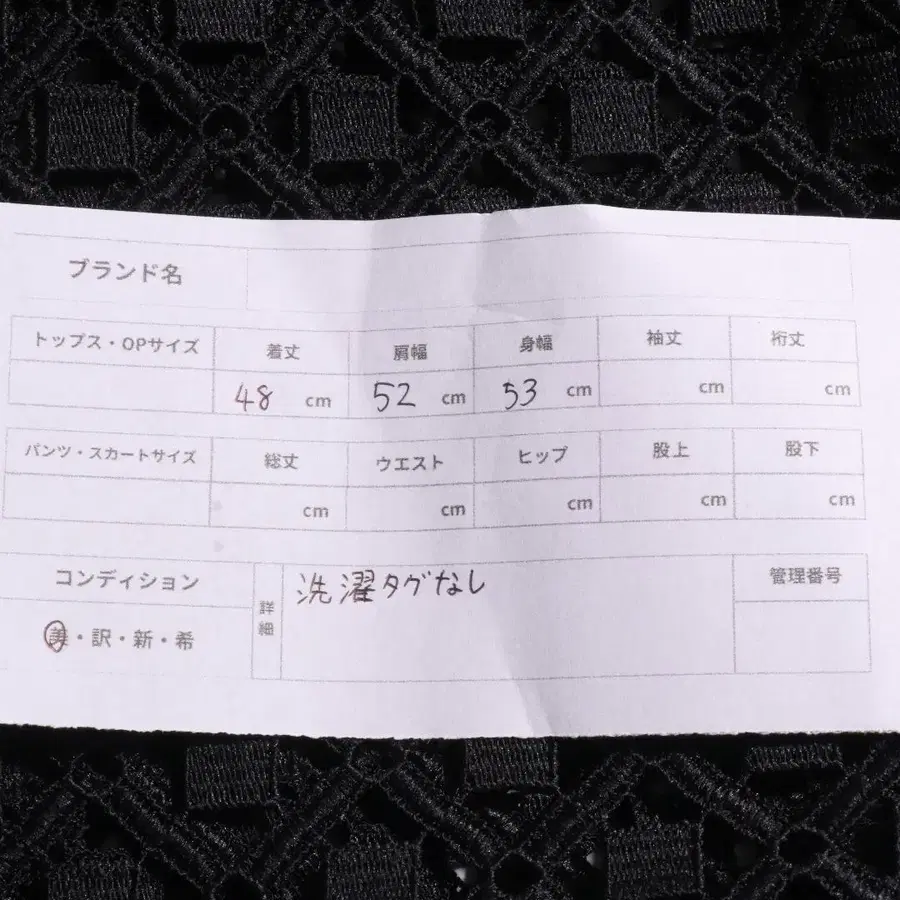 ブランド名
トップス・OPサイズ 着丈 肩幅 身幅 袖丈 裄丈
48 cm 52 cm 53 cm cm cm
パンツ・スカートサイズ 総丈 ウエスト ヒップ 股上 股下
cm cm cm cm cm
コンディション 詳細 洗濯タグなし 管理番号
美・訳・新・希